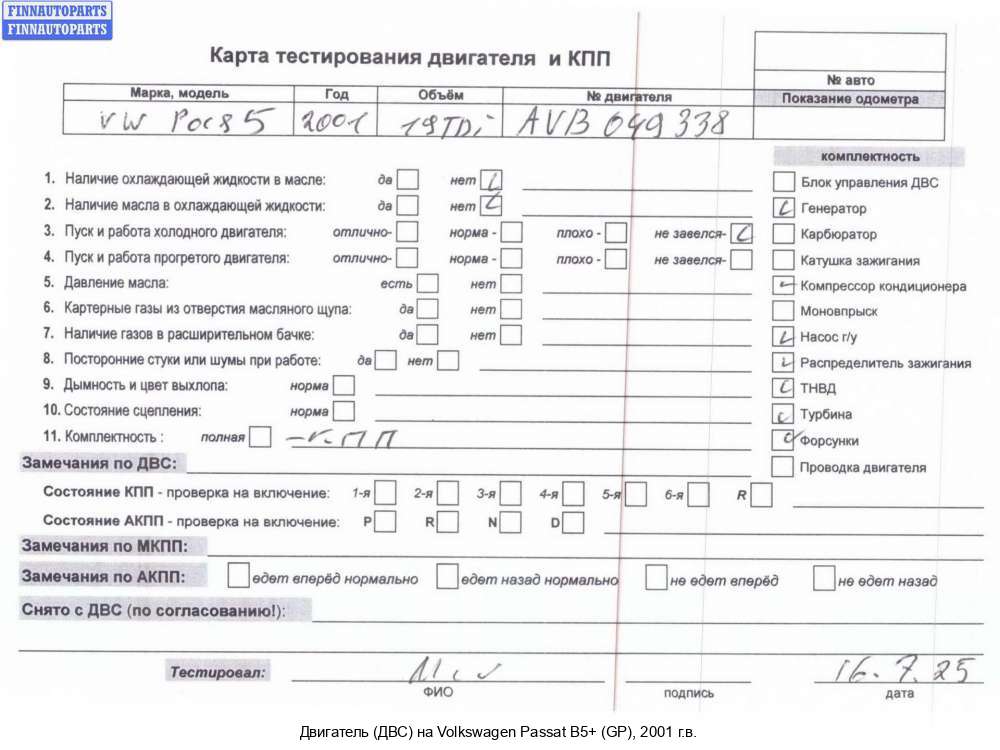 FINNAUTOPARTS
FINNAUTOPARTS
Карта тестирования двигателя и КПП
№ авто
Марка, модель Год Объём № двигателя Показание одометра
VW 2001 1.9TDi AVB 049 338
комплектность
1. Наличие охлаждающей жидкости в масле: да нет
Блок управления ДВС
2. Наличие масла в охлаждающей жидкости: да нет
Генератор
3. Пуск и работа холодного двигателя: отлично- норма - плохо - не завелся-
Карбюратор
4. Пуск и работа прогретого двигателя: отлично- норма - плохо - не завелся-
Катушка зажигания
5. Давление масла: есть нет
Компрессор кондиционера
6. Картерные газы из отверстия масляного щупа: да нет
Моновпрыск
7. Наличие газов в расширительном бачке: да нет
Насос г/у
8. Посторонние стуки или шумы при работе: да нет
Распределитель зажигания
9. Дымность и цвет выхлопа: норма
ТНВД
10. Состояние сцепления: норма
Турбина
11. Комплектность : полная - КПП
Форсунки
Замечания по ДВС:
Проводка двигателя
Состояние КПП - проверка на включение: 1-я 2-я 3-я 4-я 5-я 6-я R
Состояние АКПП - проверка на включение: P R N D
Замечания по МКПП:
Замечания по АКПП: едет вперёд нормально едет назад нормально не едет вперёд не едет назад
Снято с ДВС (по согласованию!):
Тестировал: 16.7.25
ФИО подпись дата
Двигатель (ДВС) на Volkswagen Passat B5+ (GP), 2001 г.в.